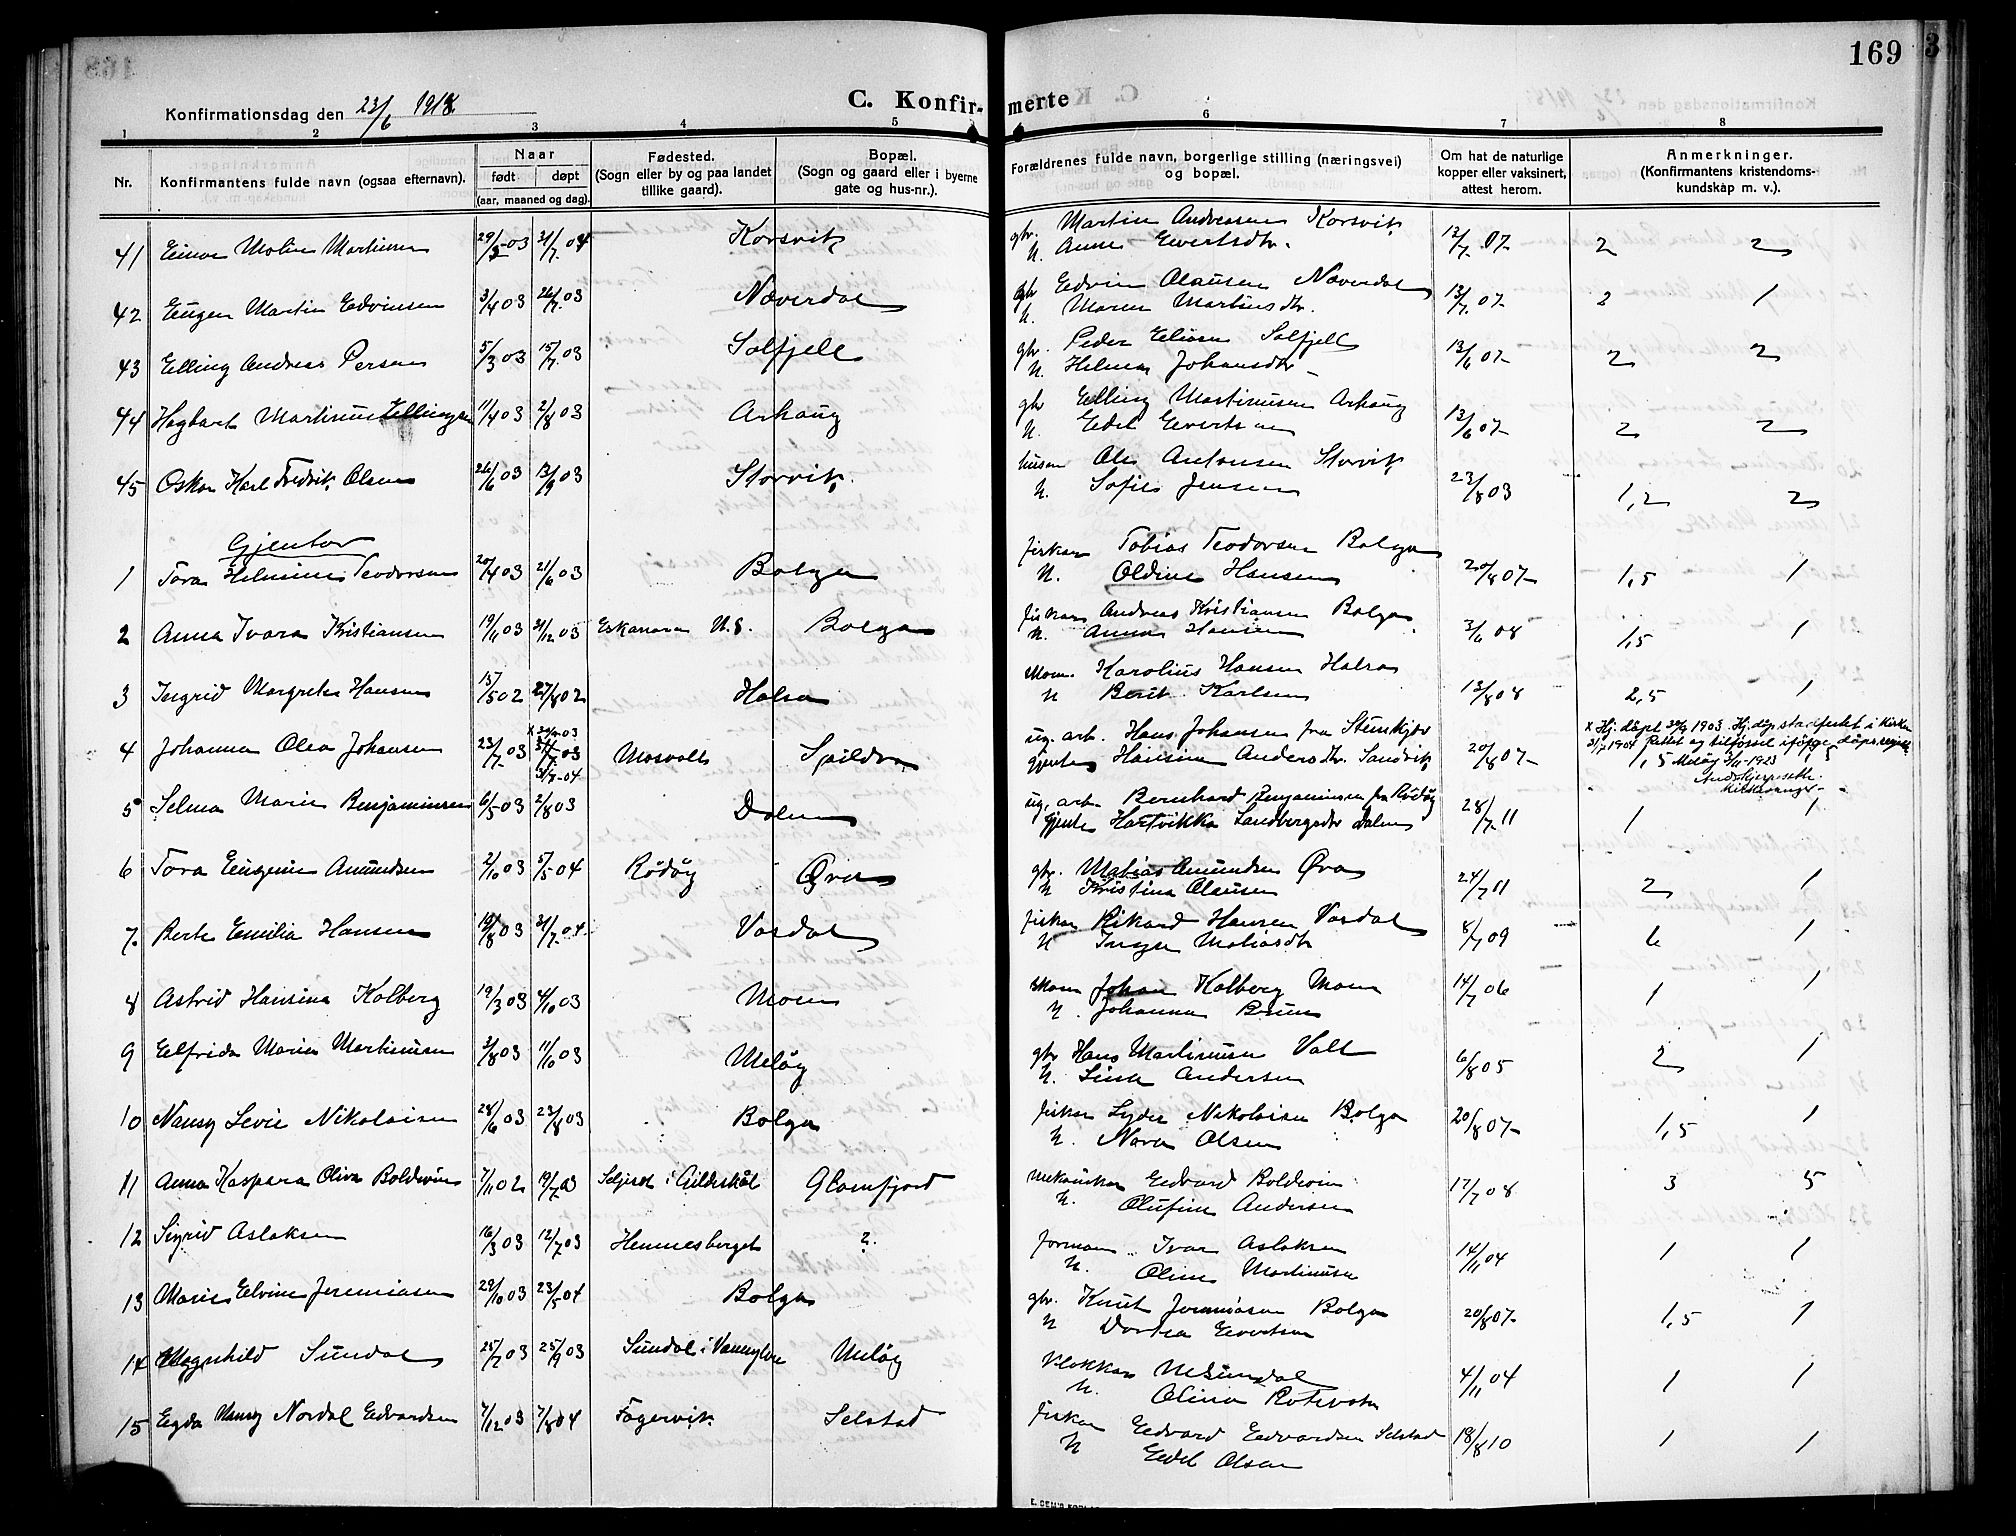 169
C. Konfir- merte
Konfirmationsdag den 23/6 1918.
1 2 3 4 5 6 7 8
Nr.
Konfirmantens fulde navn (ogsaa efternavn).
Naar
født døpt
(aar, maaned og dag).
Fødested.
(Sogn eller by og paa landet
tillike gaard).
Bopæl.
(Sogn og gaard eller i byerne
gate og hus-nr.).
Forældrenes fulde navn, borgerlige stilling (næringsvei)
og bopæl.
Om hat de naturlige
kopper eller vaksinert,
attest herom.
Anmerkninger.
(Konfirmantens kristendoms-
kundskap m. v.).
41 Einar Molin Martinsen 03 31/7 04 Korsvik gbr. Martin Andreasen Korsvik 13/7 07- 2 2
h. Anne Evertsdtr.
42 Eugen Martin Edvinsen 3/4 03 26/7 03 Næverdal gbr Edvin Olausen Næverdal 13/7 07- 2 1
h. Maren Martinsdtr.
43 Elling Andreas Persen 5/3 03 15/7 03 Selfjell gbr. Peder Eliasen Selfjell 13/6 07- 2 2
h. Helmine Johansdtr
44 Hagbart Martinus Ellingsen 11/4 03 2/8 03 Arhaug gbr Elling Martinusen Arhaug 13/6 07- 2 2
h. Edel Evertsen
45 Oskar Karl Fredrik Olsen 26/6 03 13/9 03 Storvik husm Ole Antonsen Storvik 23/8 03 1,2 2
h. Sofie Jensen
Gjenter
1 Tora Helmine Teodorsen 20/4 03 21/6 03 Bolga fisker Tobias Teodorsen Bolga 20/8 07- 1,5 1
h. Oldine Hansen
2 Anna Ivara Kristiansen 19/11 03 31/12 03 Bolga fisker Andreas Kristiansen Bolga 3/6 08 1,5 1
h. Anna Hansen
3 Ingrid Margrete Hansen 15/5 02 27/8 02 Halsa Karolius Hansen Halsa 13/8 08 2,5 1
h Berit Karlsen
4 Johanna Olea Johansen 23/7 03 Mosvolt Spildra ug. arb. Hans Johansen fra Stenkjær 20/8 07- 1,5
gjente Hansine Andersdtr. Sandvik
x Hj. døpt 1903 Hj. dåp stadfestet i kirken
31/7 1904 Rettet og tilføiet ifølge dåpsregist.
Meløy 1923
5 Selma Marie Benjaminsen 6/5 03 2/8 03 Dalen ug. arb. Bernhard Benjaminsen fra Rödöy 28/7 11 1 1
gjente Hartvikka Sandbergsdtr Dalen
6 Tora Eugenie Amundsen 2/10 03 5/5 04 Rödöy Øra gbr. Matias Amundsen Øra 24/7 11 2 1
h Kristina Olausen
7. Berte Emilia Hansen 19/8 03 31/7 04. Vasdal fisker Rikard Hansen Vasdal 8/7 09 1
h Inga Matiasdtr
8 Astrid Hansina Kolberg 19/3 03 4/10 03 Moen Johan Kolberg Moen 14/7 06 1 1
h. Johanna Bruun
9 Elfrida Marie Martinusen 3/8 03 11/10 03 Meløy gbr Hans Martinusen Valle 6/8 05 2 1
h. Lina Andersen
10 Nansy Levie Nikolaisen 28/6 03 23/8 03 Bolga fisker Lyder Nikolaisen Bolga 20/8 07- 1,5 1
h. Nora Olsen
11 Anna Kaspara Oliva Boldevin 7/11 02 19/7 03 i Gildeskål Glomfjord mekaniker Edvard Boldevin 17/7 08 3 5
h. Olufine Andersen
12 Sigrid Aslaksen 16/3 03 12/7 03 Hemnesberget ? formann Ivar Aslaksen 14/11 04 1 1
h. Oline Martinusen
13 Marie Elvine Jeremiasen 29/10 03 23/5 04 Bolga gbr. Knut Jeremiasen Bolga 20/8 07- 1,5 1
h Dortea Evertsen
14 Magnhild Sundal 25/7 03 25/9 03 Sundal i Vannylven Meløy Klokker M Sundal 4/11 04 1 1
h. Olina
15 Egda Nansy Nordal Edvardsen 7/12 03 7/8 04 Fagervik Selstad fisker Edvard Edvardsen Selstad 18/8 10 1 1
h Edel Olsen